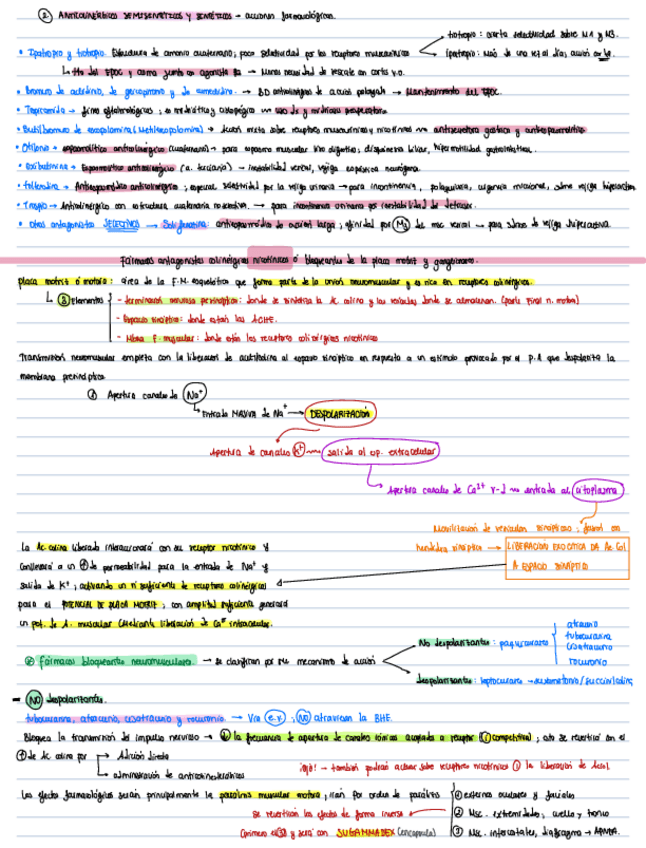 ② ANTICOLINÉRGICOS SEMISINTÉTICOS Y SINTÉTICOS - acciones farmacológicas.
tiotropio: cierta selectividad sobre M1 y M3.
• Ipratropio y tiotropio. Estructura de amonio cuaternario; poca selectividad por los receptores muscarínicos
ipratropio: más de una vez al día, acción corta.
↳ Tto del EPOC y asma junto con agonista β2 → Menos necesidad de rescate con corta v.o.
• Bromuro de aclidinio, de glicopirronio y de umeclidinio. → BD antimuscarínicos de acción prolongada → Mantenimiento del EPOC.
• Tropicamida → fines oftalmológicos; es midriático y ciclopléjico → uso dx y midriasis preoperatoria
• Butilbromuro de escopolamina (Metilescopolamina) → Acción mixta sobre receptores muscarínicos y nicotínicos → antisecretora gástrica y antiespasmódica
• Otilonio → espasmolítico anticolinérgico (cuaternario) → para espasmo muscular liso digestivo; disquinesia biliar, hipermotilidad gastrointestinal.
• Oxibutinina → Espasmolítico anticolinérgico (a. terciaria) → inestabilidad vesical, vejiga espástica neurógena.
• Tolterodina → Antiespasmódico anticolinérgico; especial selectividad por la vejiga urinaria → para incontinencia, polaquiuria, urgencia miccional, sobre vejiga hiperactiva
• Trospio → Anticolinérgico con estructura cuaternaria no selectiva. → para incontinencia urinaria por inestabilidad de detrusor.
• Otros antagonistas SELECTIVOS → Solifenacina: antiespasmódico de acción larga; afinidad por M3 del msc vesical → para sdme de vejiga hiperactiva.
Fármacos antagonistas colinérgicos nicotínicos o bloqueantes de la placa motriz y ganglionares.
Placa motriz o motora: área de la F.M. esquelética que forma parte de la unión neuromuscular y es rica en receptores colinérgicos.
↳ ③ Elementos
- Terminación nerviosa presináptica: donde se sintetiza la Ac. colina y las vesículas donde se almacenan. (parte final n. motora)
- Espacio sináptico: donde están las ACHE.
- Fibra F. muscular: donde están los receptores colinérgicos nicotínicos
Transmisión neuromuscular empieza con la liberación de acetilcolina al espacio sináptico en respuesta a un estímulo provocado por el P.A que despolariza la
membrana presináptica
① Apertura canales de Na⁺
↳ Entrada MASIVA de Na⁺ → DESPOLARIZACIÓN
Apertura de canales K⁺ → salida al esp. extracelular
↳ Apertura canales de Ca²⁺ V-D → entrada al citoplasma
Movilización de vesículas sinápticas; fusión con
hendidura sináptica → LIBERACIÓN EXOCÍTICA DA Ac. Col
A ESPACIO SINÁPTICO
La Ac. colina liberada interaccionará con su receptor nicotínico y
conllevará a un ⊕ de permeabilidad para la entrada de Na⁺ y
salida de K⁺; activando un nº suficiente de receptores colinérgicos
para el POTENCIAL DE PLACA MOTRIZ; con amplitud suficiente generará
un pot. de A. muscular mediante liberación de Ca²⁺ intracelular.
② Fármacos bloqueantes neuromusculares → se clasifican por su mecanismo de acción
No despolarizantes: paquicurares
atracurio
tubocurarina
cisatracurio
rocuronio
Despolarizantes: leptocurares → suxametonio/succinilcolina
- NO despolarizantes.
tubocurarina, atracurio, cisatracurio y rocuronio → Vía e.v; NO atraviesan la BHE.
Bloquea la transmisión del impulso nervioso → ↓ la frecuencia de apertura de canales iónicos acoplada a receptor (competitiva); esto se revertirá con el
↑ de Ac. colina por
→ Adición directa
→ administración de anticolinesterásicos
¡ojo! → también podrán actuar sobre receptores nicotínicos ↓ la liberación de Acol.
Los efectos farmacológicos serán principalmente la parálisis muscular motora; irán por orden de parálisis
① externa oculares y faciales
② Msc. extremidades, cuello y tronco
③ Msc. intercostales, diafragma → APNEA.
se revertirán los efectos de forma inversa
(primero el ③) y será con SUGAMMADEX (encapsula)